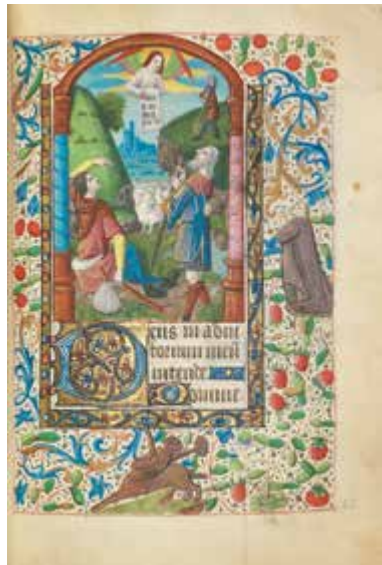 Deus in adiu
torium meu
intende
Domine